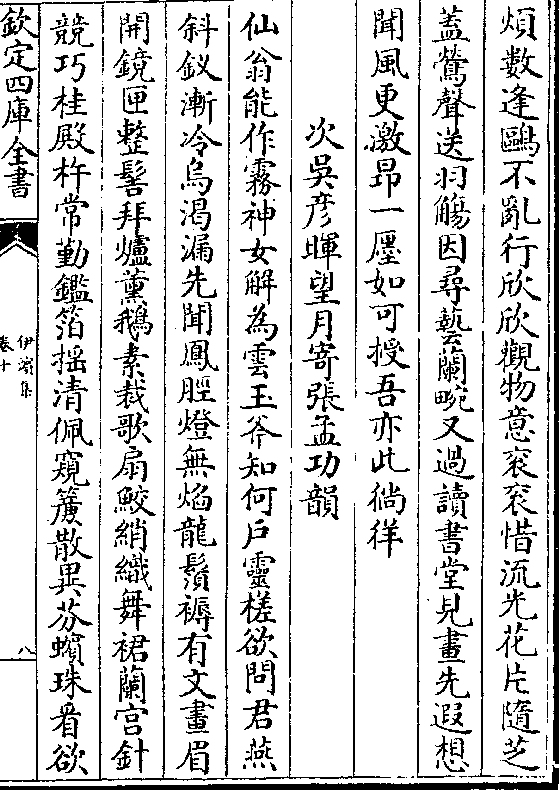 煩數逢鷗不亂行欣欣觀物意衮衮惜流光花片隨芝
蓋鶯聲送羽觴因尋藝蘭畹又過讀書堂見畫先遐想
聞風更激昂一廛如可授吾亦此徜徉
次吳彦暉望月寄張孟功韻
仙翁能作霧神女解為雲玉斧知何戶靈槎欲問君燕
斜釵漸冷烏渴漏先聞鳳脛燈無焰龍鬚褥有文畫眉
開鏡匣整髻拜爐薰鵝素裁歌扇鮫綃織舞裙蘭宫針
競巧桂殿杵常勤鑑箔揺清佩窺簾散異芬蠙珠看欲
欽定四庫全書
伊濱集
卷十
八